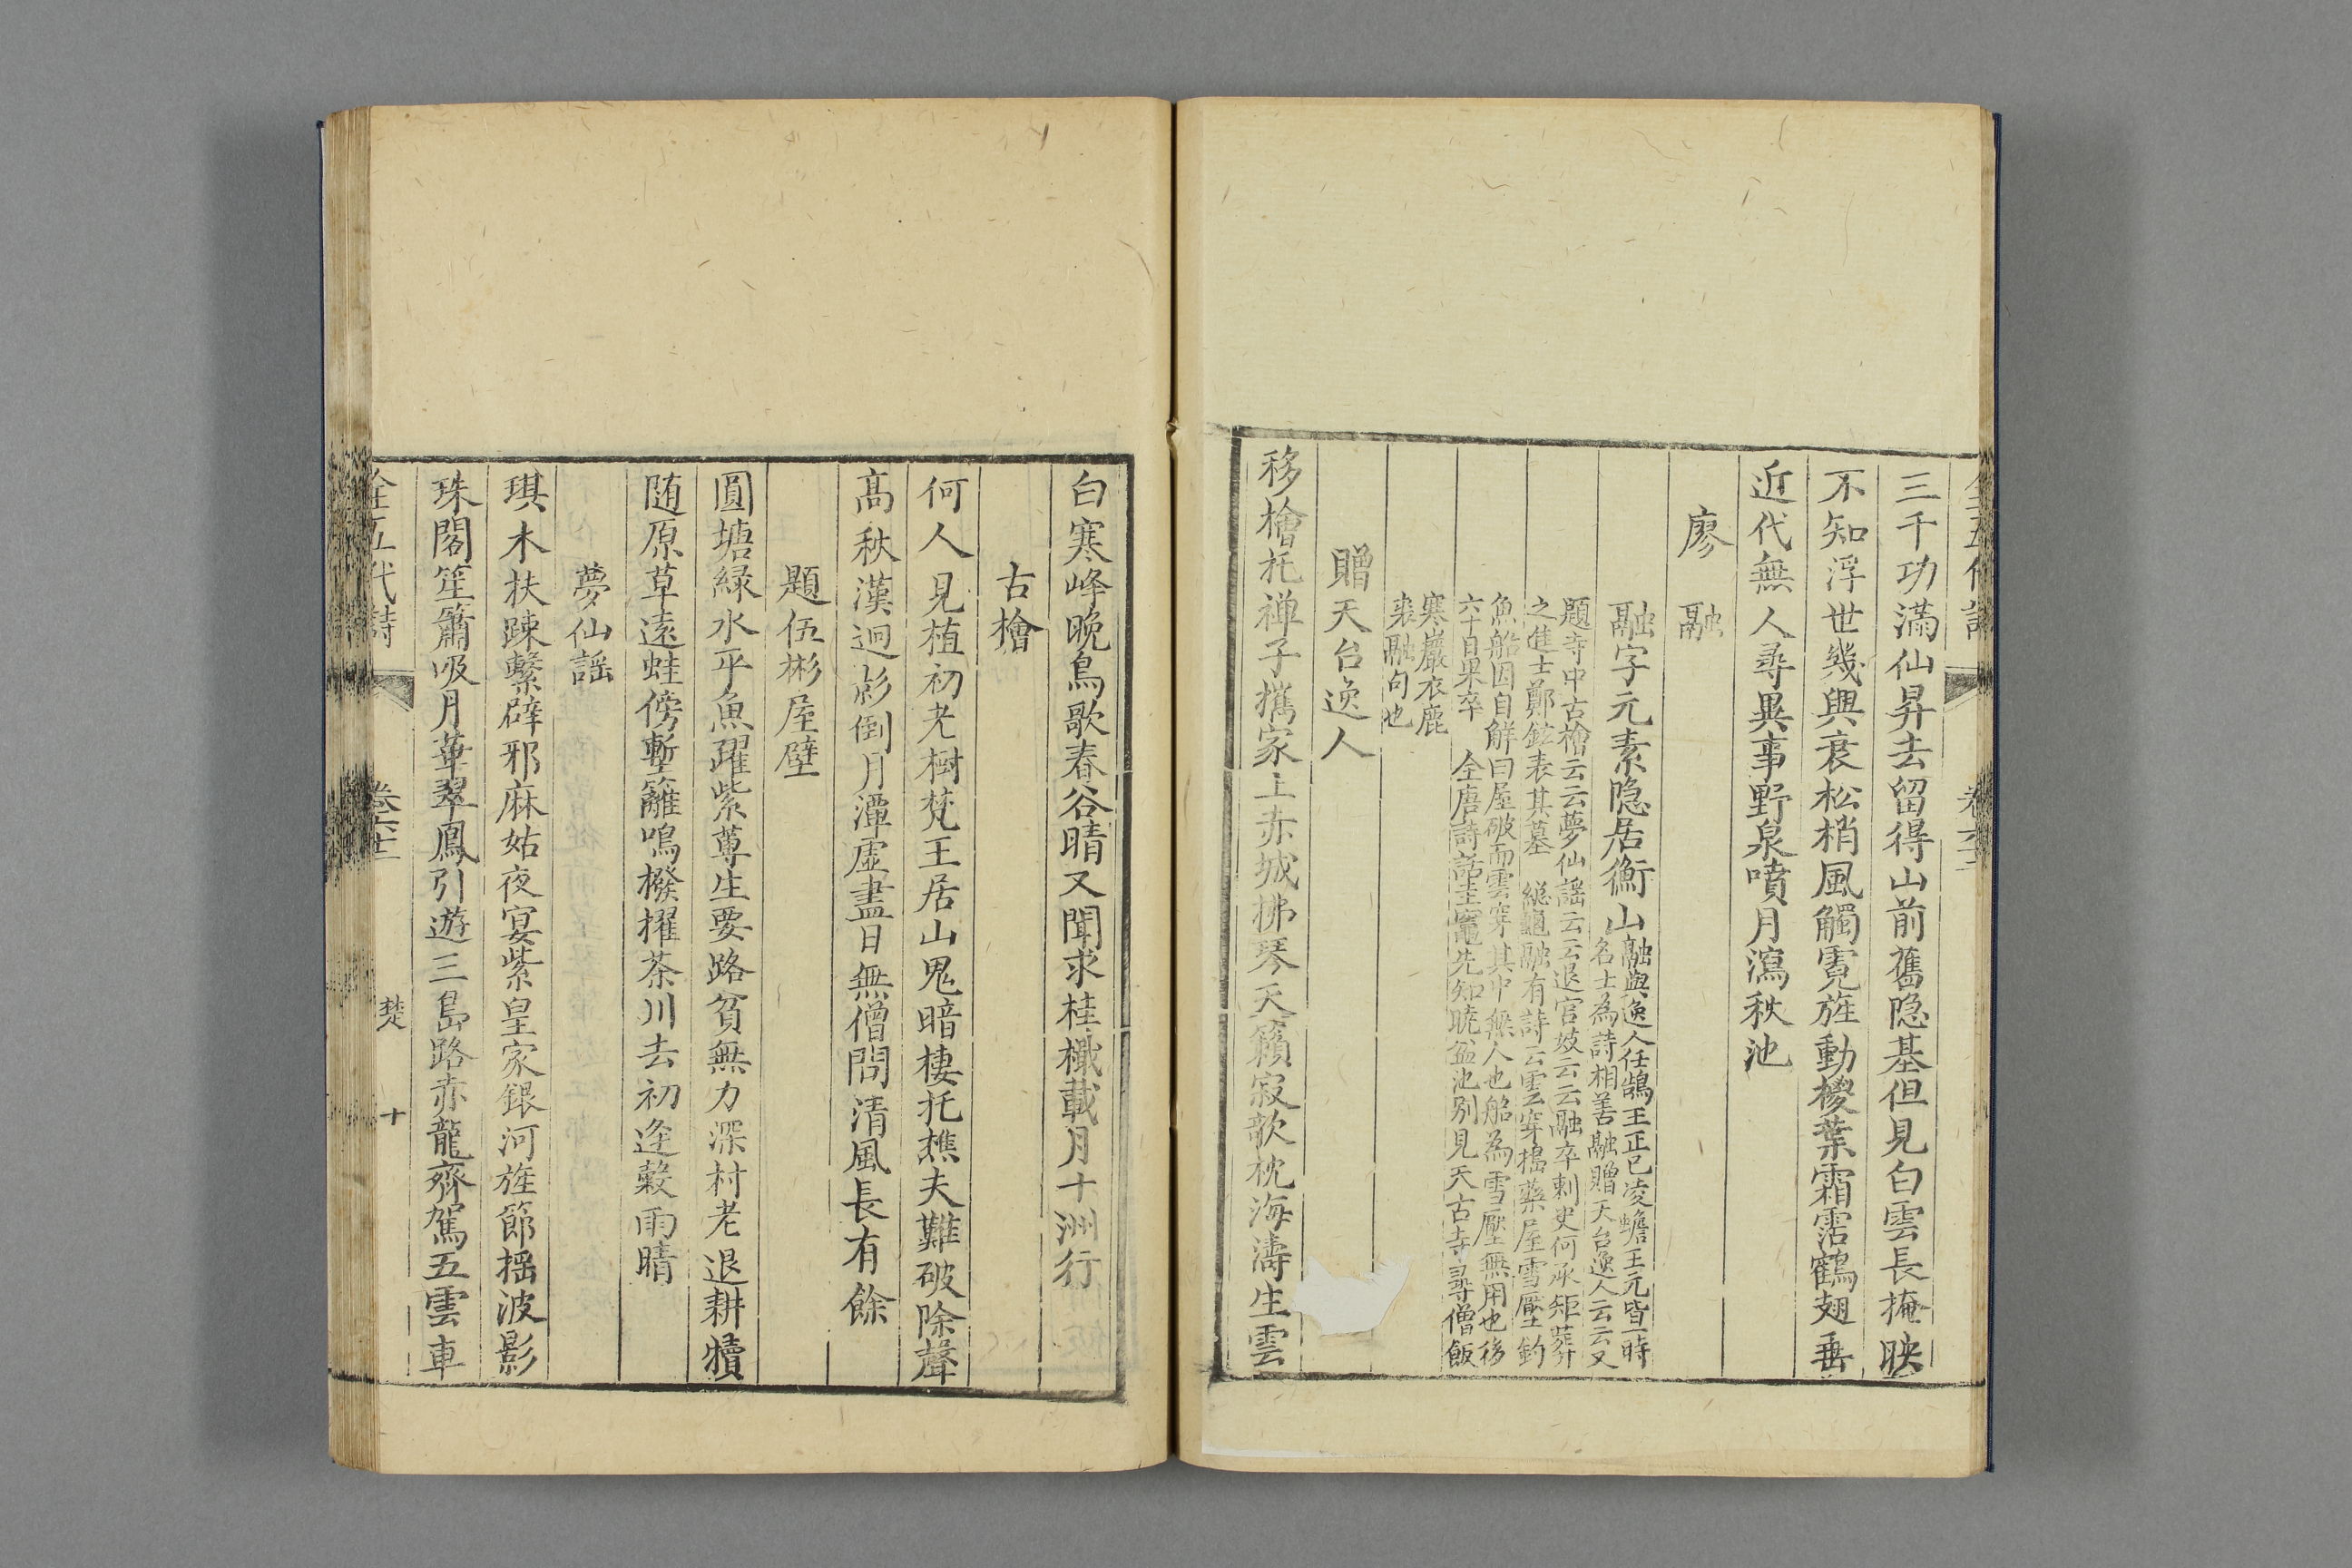 三千功滿仙昇去留得山前舊隐基但見白雲長掩映
不知浮世幾興衰松梢風觸霓旌動椶葉霜霑鶴翅垂
近代無人尋異事野泉噴月瀉秋池
廖融
融字元素隐居衡山
融與逸人任鵠王正已凌蟾王元皆一時
名士為詩相善融贈天台逸人云云又
題寺中古檜云云夢仙謡云云退宫妓云云融卒刺史何承矩葬
之進士鄭鉉表其墓 總龜融有詩云雲穿擣藥屋雪壓釣
魚船因自解曰屋破而雲穿其中無人也船為雪壓無用也後
六十日果卒 全唐詩話圭竃先知曉盆池别見天古寺尋僧飯
寒巖衣鹿
裘融句也
贈天台逸人
移檜托禅子攜家上赤城拂琴天籟寂欹枕海濤生雲
白寒峰晚鳥歌春谷晴又聞求桂檝載月十洲行
古檜
何人見植初老樹梵王居山鬼暗棲托樵夫難破除聲
髙秋漢迥影倒月潭虚盡日無僧問清風長有餘
題伍彬屋壁
圓塘緑水平魚躍紫蓴生要路貧無力深村老退耕犢
随原草遠蛙傍塹籬鳴撥擢茶川去初逢穀雨晴
夢仙謡
琪木扶踈繫辟邪麻姑夜宴紫皇家銀河旌節揺波影
珠閣笙簫吸月華翠鳳引遊三島路赤龍齊駕五雲車
全五代詩 卷六十二 楚 十